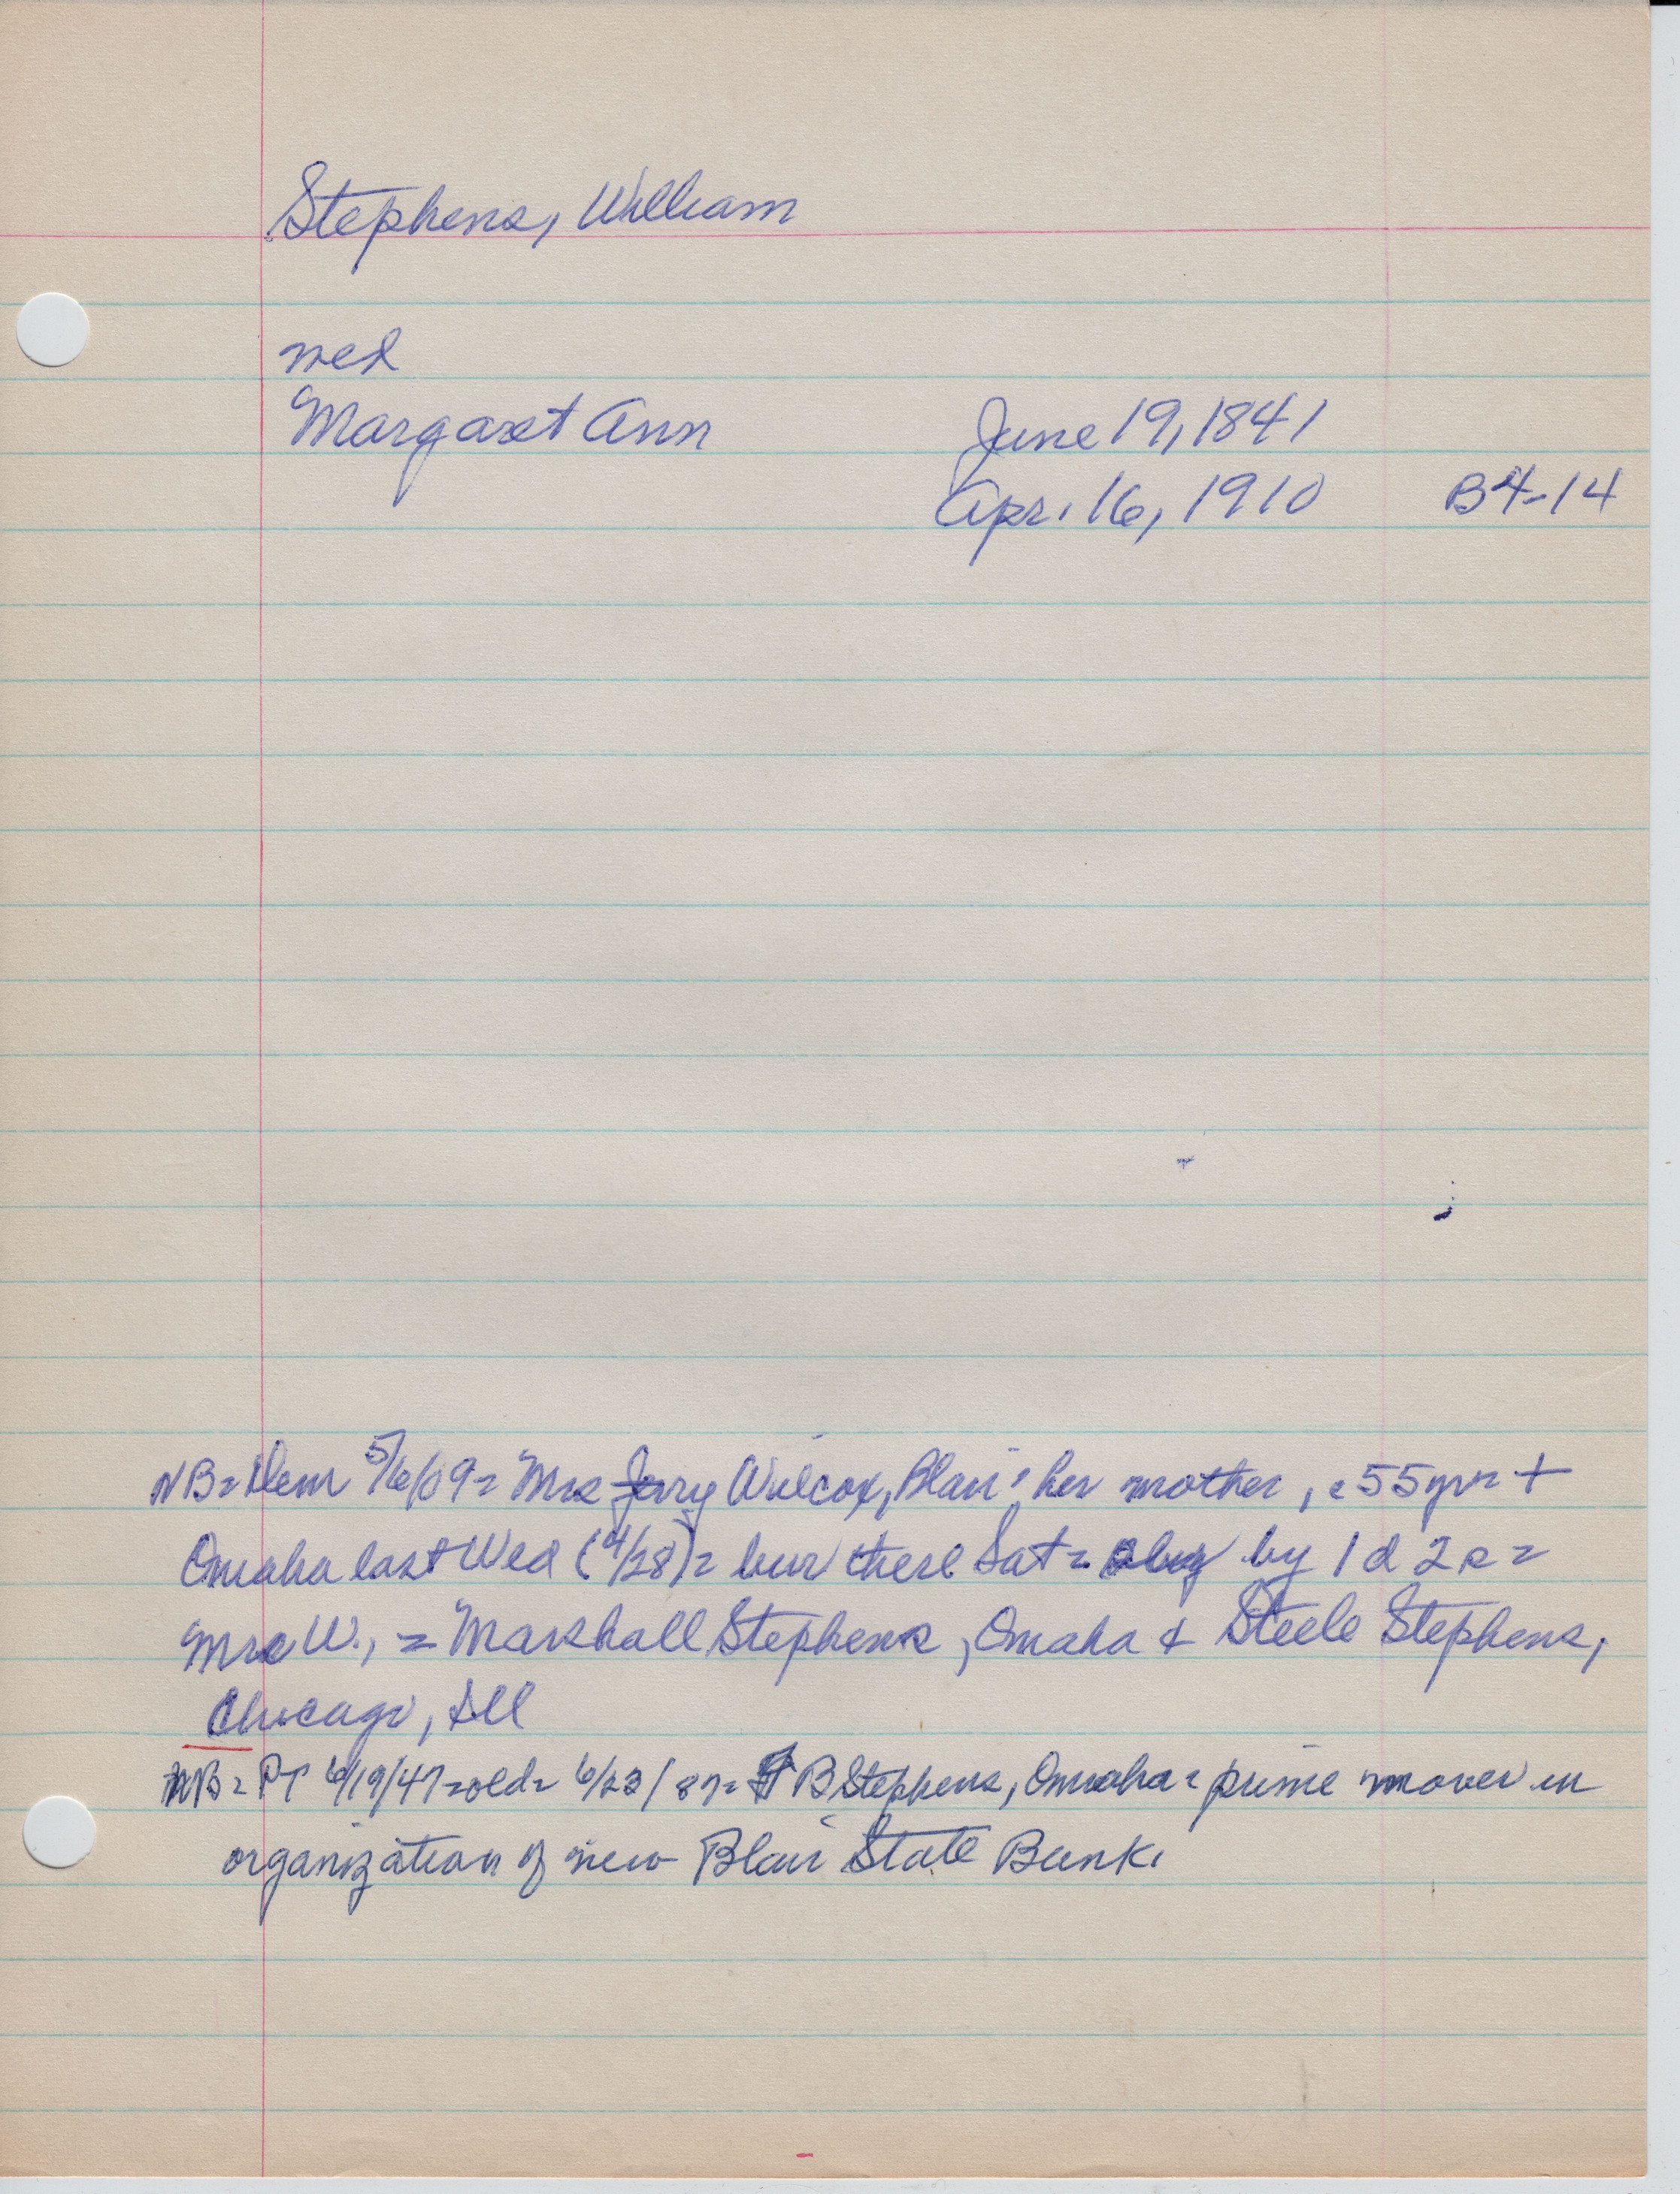 Stephens, William
wed
Margaret Ann June 19, 1841
Apr. 16, 1910 B4-14
NB = Dem 5/6/09 = Mrs Jerry Wilcox, Blair: her mother, c 55 yrs +
Omaha last Wed (4/28) = bur there Sat = by 1 d 2 s =
Mrs W., = Marshall Stephens, Omaha & Steele Stephens,
Chicago, Ill
NB = PT 6/19/47 = old = 6/23/87 = B Stephens, Omaha = prime mover in
organization of new Blair State Bank.